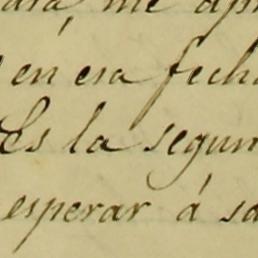 ara, me ap
en esa fech
Es la segun
esperar á sa